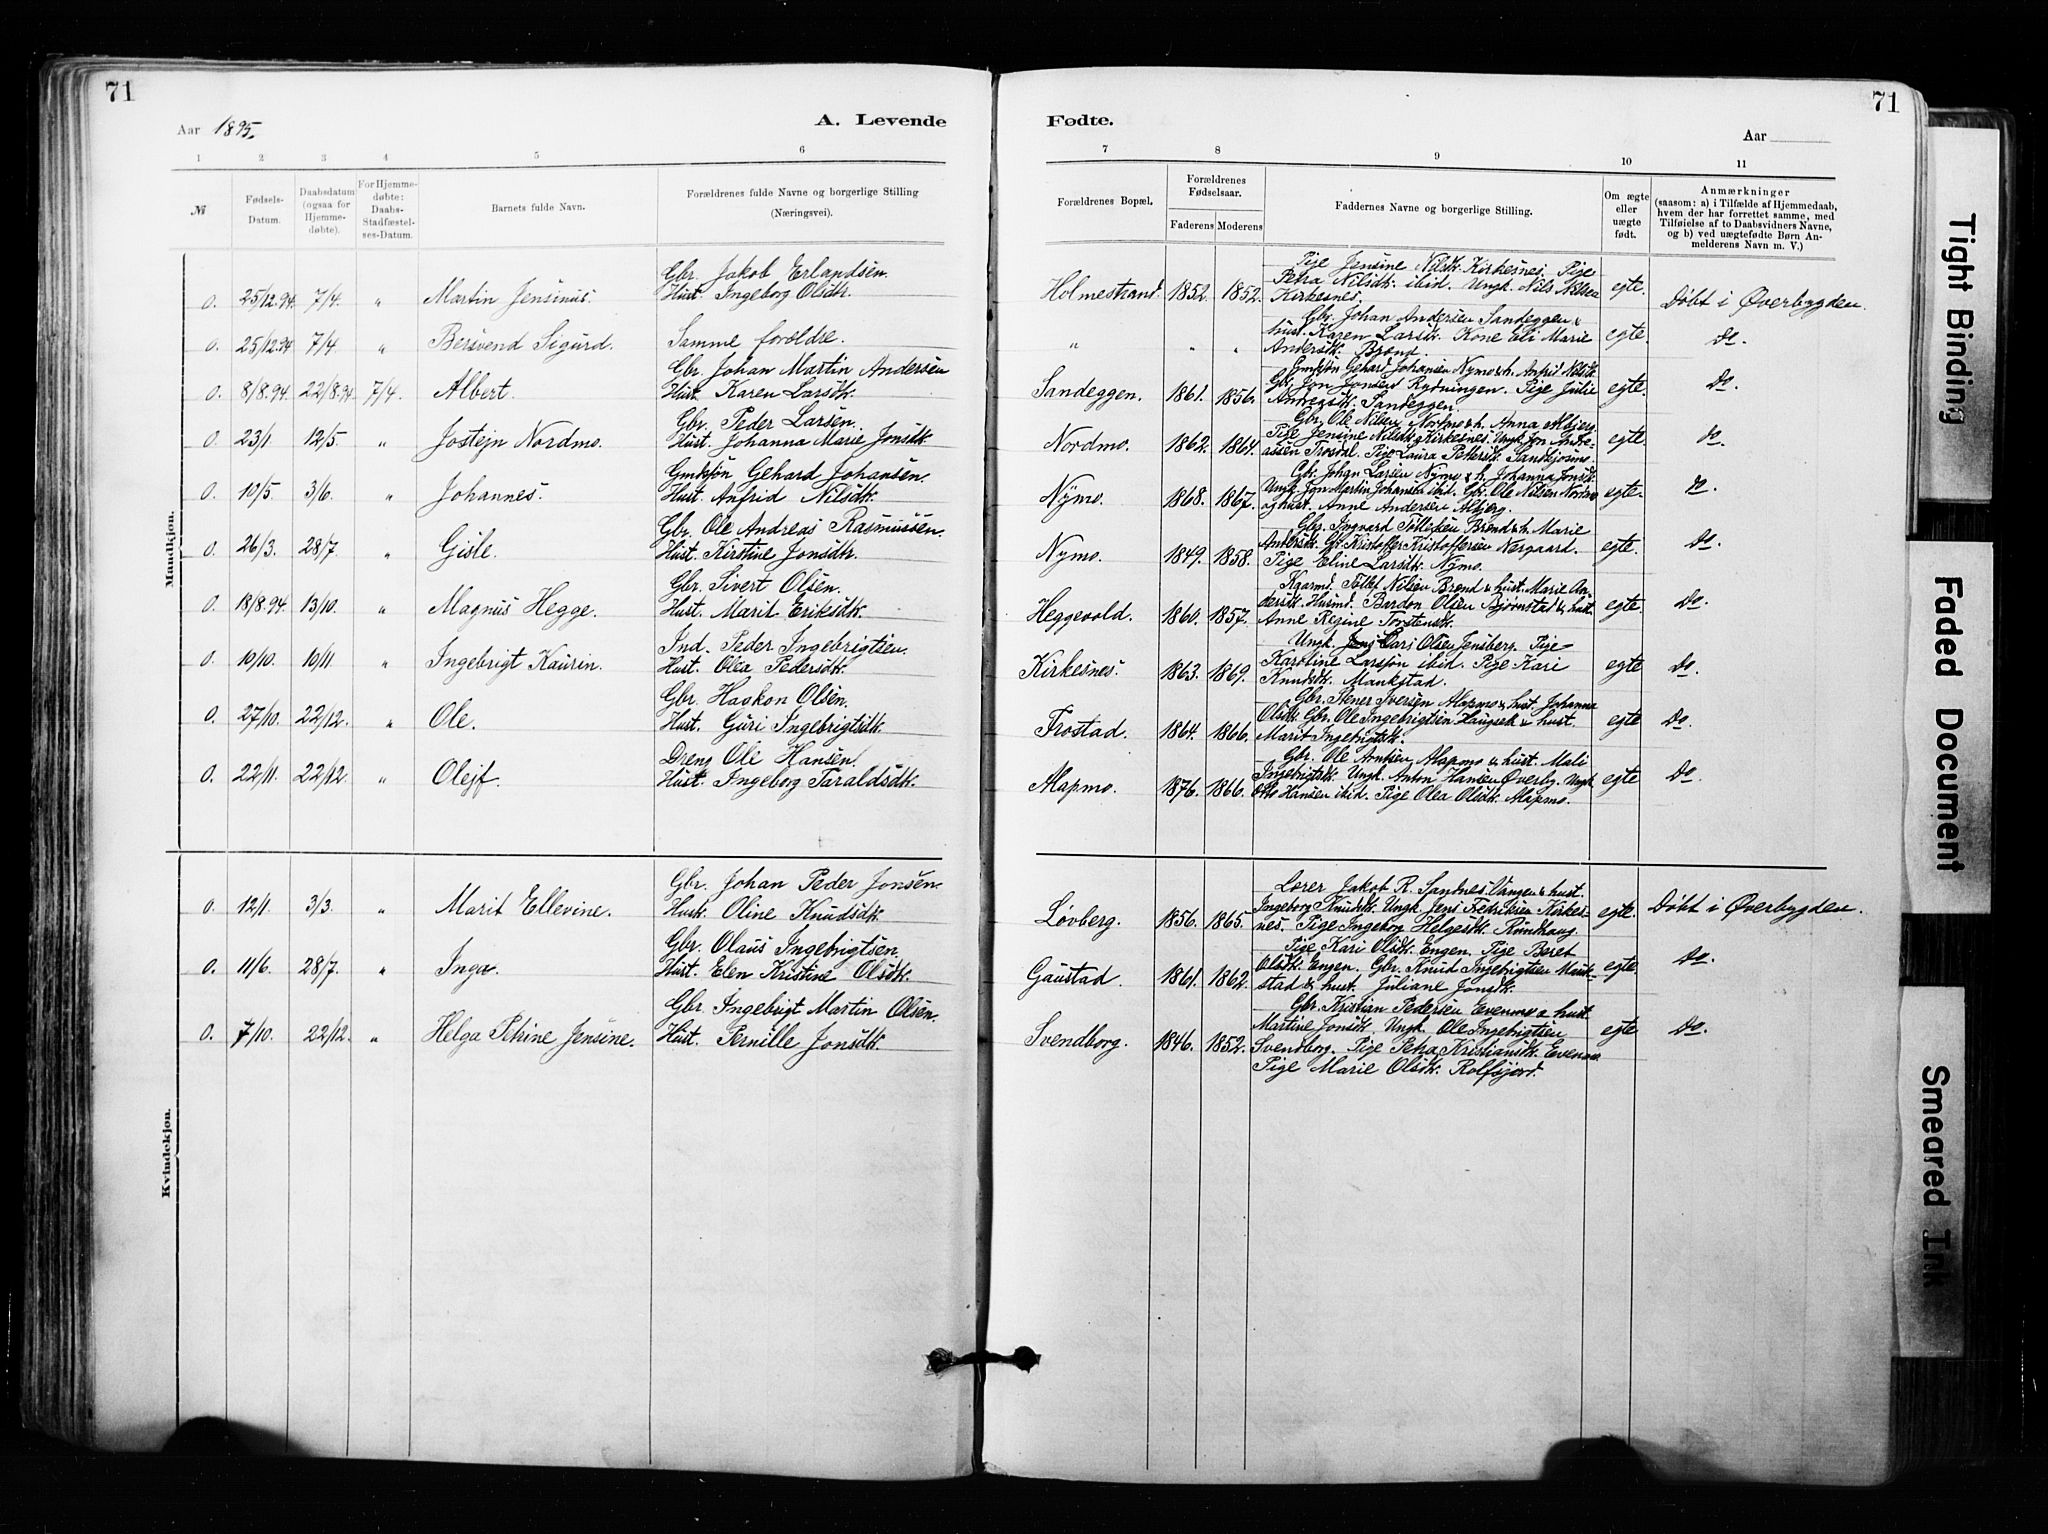 71
Aar 1895.
A. Levende
1 2 3 4 5 6
№
Fødsels-Datum.
Daabsdatum (ogsaa for Hjemme-døbte).
For Hjemme-døbte: Daabs-Stadfæstel-ses-Datum.
Barnets fulde Navn.
Forældrenes fulde Navne og borgerlige Stilling (Næringsvei).
Mandkjøn.
Gbr. Jakob Erlandsen.
0. 25/12.94. 7/4. „ Martin Jensinus. Hust. Ingeborg Olsdtr.
0. 25/12.94 7/4. „ Bersvend Sigurd. Samme forældre.
Gbr. Johan Martin Andersen
0. 8/8.94. 22/8.94 7/4. Albert. Hust. Karen Larsdtr.
Gbr. Peder Larsen.
0. 23/1. 12/5. „ Jostejn Nordmo. Hust. Johanna Marie Jonsdtr
Gmksjøn Gehard Johansen.
0. 10/5. 3/6. „ Johannes. Hust. Anfrid Nilsdtr.
Gbr. Ole Andreas Rasmussen.
0. 26/3. 28/7. „ Gisle. Hust. Kirstine Jonsdtr.
Gbr. Sivert Olsen.
0. 18/8.94. 13/10. „ Magnus Hegge. Hust. Marit Eriksdtr.
Ind. Peder Ingebrigtsen.
0. 10/10. 10/11. „ Ingebrigt Kaurin. Hust. Olea Pedersdtr.
Gbr. Haakon Olsen.
0. 27/10. 22/12. „ Ole. Hust. Guri Ingebrigtsdtr.
Dreng Ole Hansen.
0. 22/11. 22/12. „ Olejf. Hust. Ingeborg Taraldsdtr.
Kvindekjøn.
Gbr. Johan Peder Jonsen.
0. 12/1. 3/3. „ Marit Ellevine. Hust. Oline Knudsdtr.
Gbr. Olaus Ingebrigtsen.
0. 11/6. 28/7. „ Inga. Hust. Elen Kristine Olsdtr.
Gbr. Ingebrigt Martin Olsen.
0. 7/10. 22/12. „ Helga Petrine Jensine. Hust. Pernille Jonsdtr.
71
Fødte.
Aar
7 8 9 10 11
Forældrenes Bopæl.
Forældrenes Fødselsaar.
Faderens Moderens
Faddernes Navne og borgerlige Stilling.
Om ægte eller uægte født.
Anmærkninger
(saasom: a) i Tilfælde af Hjemmedaab,
hvem der har forrettet samme, med
Tilføielse af to Daabsvidners Navne,
og b) ved uægtefødte Børn An-
melderens Navn m. V.)
Pige Jensine Nilsdtr. Kirkesnes. Pige
Petra Nilsdtr. ibid. Ungk. Nils Nilsen
Holmestrand. 1852. 1852. Kirkesnes. egte. Døbt i Øverbygden.
Gbr. Johan Andersen Sandeggen &
hust. Karen Larsdtr. Kone Eli Marie
„ „ „ Andersdtr. Brend. egte. Do.
Gmksjøn Gehard Johansen Nymo & h. Anfrid Nilsdtr.
Gbr. Jon Jonsen Rydningen. Pige Julie
Sandeggen. 1861. 1856. Andreasdtr. Sandeggen. egte. Do.
Gbr. Ole Nilsen Nordmo & h. Anna Albjerg
Pige Jensine Nilsdtr. Kirkesnes. Ungk. Jon Andre-
Nordmo. 1862. 1864. assen Trosdal. Pige Laura Pettersdtr. egte. Do.
Gbr. Johan Larsen Nymo & h. Johanna Jonsdtr.
Ungk. Jon Martin Johansen ibid. Gbr. Ole Nilsen Nordmo
Nymo. 1868. 1867. og hust. Anne Andersen Albjerg. egte. Do.
Gbr. Ingvard Tollefsen Brend & h. Marie
Andersdtr. Gbr. Kristoffer Kristoffersen Nergaard.
Nymo. 1849. 1858. Pige Eline Larsdtr. Nymo. egte. Do.
Kaarmd. Tollef Nilsen Brend & hust. Marie An-
dersdtr. Husmd. Bardon Olsen Bjørnstad & hust.
Heggevold. 1860. 1857. Anne Regine Torstensdtr. egte. Do.
Ungk. Lars Olsen Jensberg. Pige
Karoline Larsen ibid. Pige Kari
Kirkesnes. 1863. 1869. Knudsdtr. Maukstad. egte Do.
Gbr. Stener Iversen Alapmo & hust. Johanna
Olsdtr. Gbr. Ole Ingebrigtsen Haugseth & hust.
Frostad. 1864. 1866. Marit Ingebrigtsdtr. egte Do.
Gbr. Ole Arntsen Alapmo & hust. Mali
Ingebrigtsdtr. Ungk. Anton Hansen Øverby. Ungk.
Alapmo. 1876. 1866. Otto Hansen ibid. Pige Olea Olsdtr. Alapmo. egte Do.
Lærer Jakob R. Sandnes. Vangen & hust.
Ingeborg Knudsdtr. Ungk. Jens Fredriksen Kirkes-
Løvberg. 1856. 1865. nes. Pige Ingeborg Helgesdtr. Rundhaug egte. Døbt i Øverbygden.
Pige Kari Olsdtr. Engen. Pige Beret
Olsdtr. Engen. Gbr. Knud Ingebrigtsen Mauk-
Gaustad. 1861. 1862. stad & hust. Juliane Jonsdtr. egte. Do.
Gbr. Kristian Pedersen Evenmo & hust.
Martine Jonsdtr. Ungk. Ole Ingebrigtsen
Svendborg. 1846. 1852. Svendborg. Pige Petra Kristiansdtr. Evenmo. egte Do.
Pige Marie Olsdtr. Rolfsjord.
Tight Binding
Faded Document
Smeared Ink